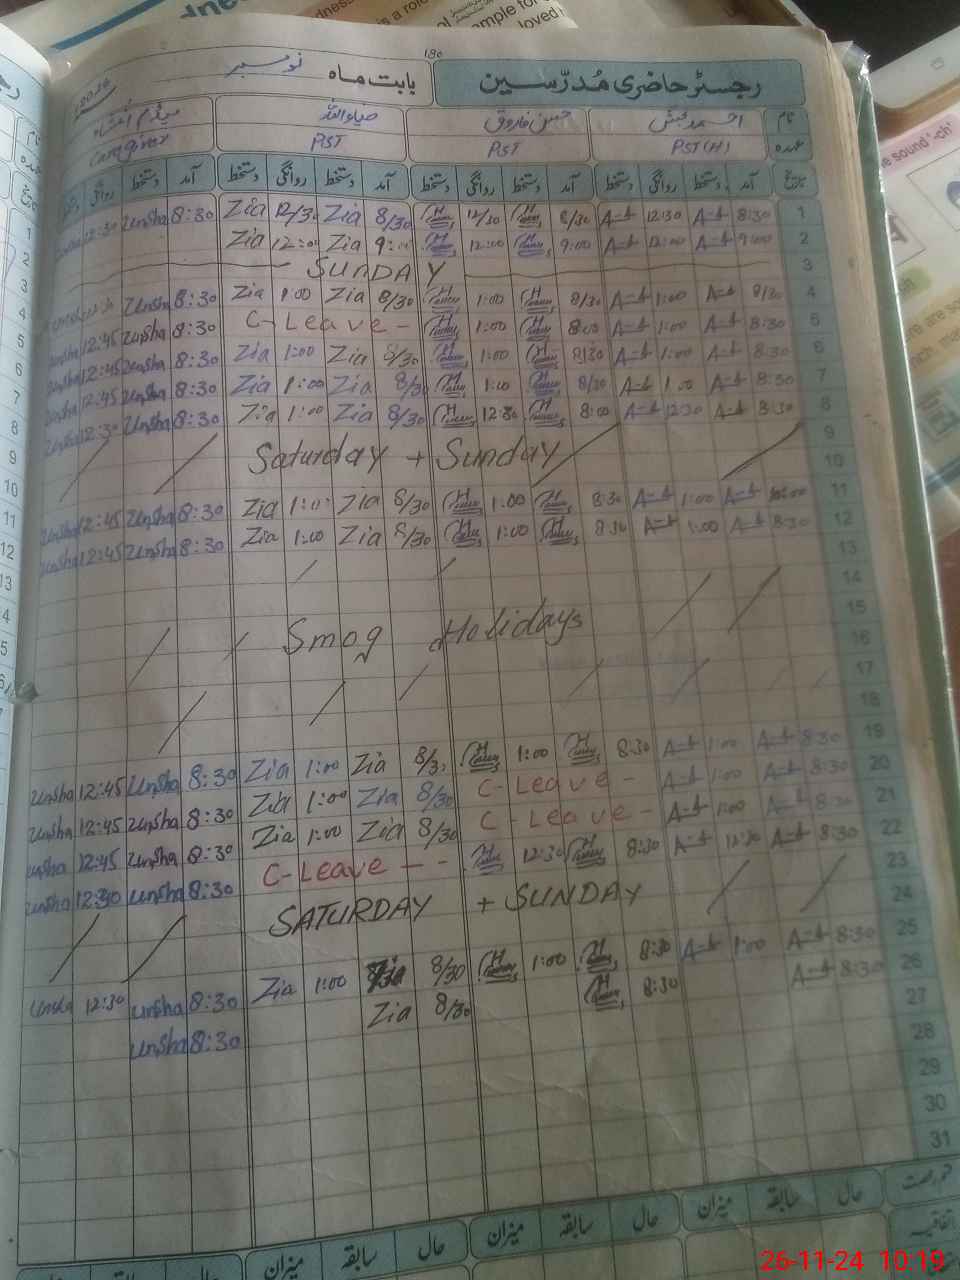 180
رجسٹر حاضری مُدرّسین بابت ماہ نومبر 2024
نام احمد بخش حسن فاروق ضیاءاللہ میڈم انشاء
عہدہ PST(H) PST PST Caregiver
تاریخ آمد دستخط روانگی دستخط آمد دستخط روانگی دستخط آمد دستخط روانگی دستخط آمد دستخط روانگی
unsha 12:30 unsha 8:30 Zia 12/30 Zia 8/30 12/30 8/30 A-t 12:30 A-t 8:30 1
Zia 12:00 Zia 9:00 12:00 9:00 A-t 12:00 A-t 9:00 2
SUNDAY 3
unsha 8:30 Zia 1:00 Zia 8/30 1:00 8/30 A-t 1:00 A-t 8/30 4
unsha 12:45 unsha 8:30 C-Leave - 1:00 8:00 A-t 1:00 A-t 8:30 5
unsha 12:45 unsha 8:30 Zia 1:00 Zia 8/30 1:00 8/30 A-t 1:00 A-t 8:30 6
unsha 12:45 unsha 8:30 Zia 1:00 Zia 8/30 1:00 8/30 A-t 1:00 A-t 8:30 7
unsha 12:30 unsha 8:30 Zia 1:00 Zia 8/30 12:30 8:00 A-t 12:30 A-t 8:30 8
9
Saturday + Sunday 10
unsha 12:45 unsha 8:30 Zia 1:00 Zia 8/30 1:00 8:30 A-t 1:00 A-t 11
unsha 12:45 unsha 8:30 Zia 1:00 Zia 8/30 1:00 8:30 A-t 1:00 A-t 8:30 12
13
14
15
Smog Holidays 16
17
18
19
unsha 12:45 unsha 8:30 Zia 1:00 Zia 8/30 1:00 8:30 A-t 1:00 A-t 8:30 20
unsha 12:45 unsha 8:30 Zia 1:00 Zia 8/30 C-Leave - A-t 1:00 A-t 8:30 21
unsha 12:45 unsha 8:30 Zia 1:00 Zia 8/30 C-Leave - A-t 1:00 A-t 8:30 22
unsha 12:30 unsha 8:30 C-Leave - - 12:30 8:30 A-t 12:30 A-t 8:30 23
SATURDAY + SUNDAY 24
25
unsha 12:30 unsha 8:30 Zia 1:00 Zia 8/30 1:00 8:30 A-t 1:00 A-t 8:30 26
unsha 8:30 Zia 8/30 8:30 A-t 8:30 27
28
29
30
31
حال سابقہ میزان حال سابقہ میزان حال سابقہ میزان حال
اتفاقیہ
26-11-24 10:19